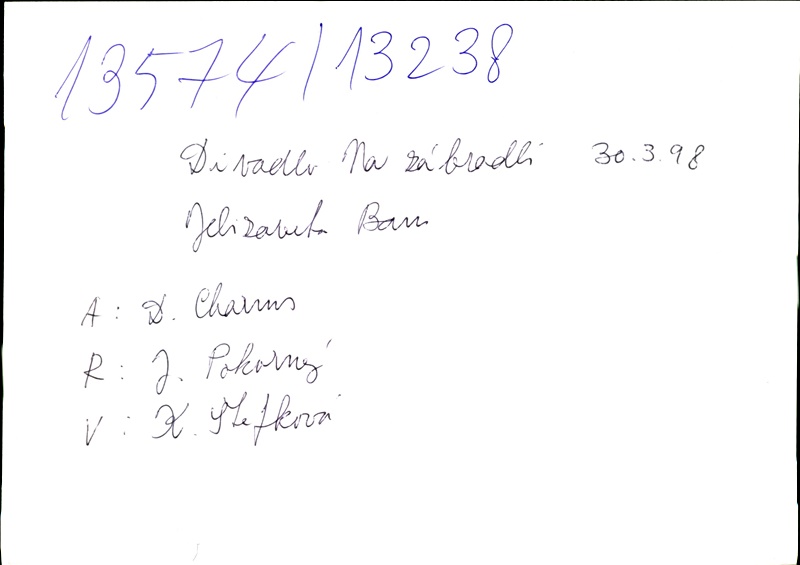 13574/13238
Divadlo Na zábradlí 30.3.98
Jelizaveta Bam
A: D. Charms
R: J. Pokorný
V: K. Štefková